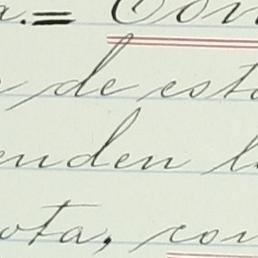 a.= Con
de esta
enden l
ota, con